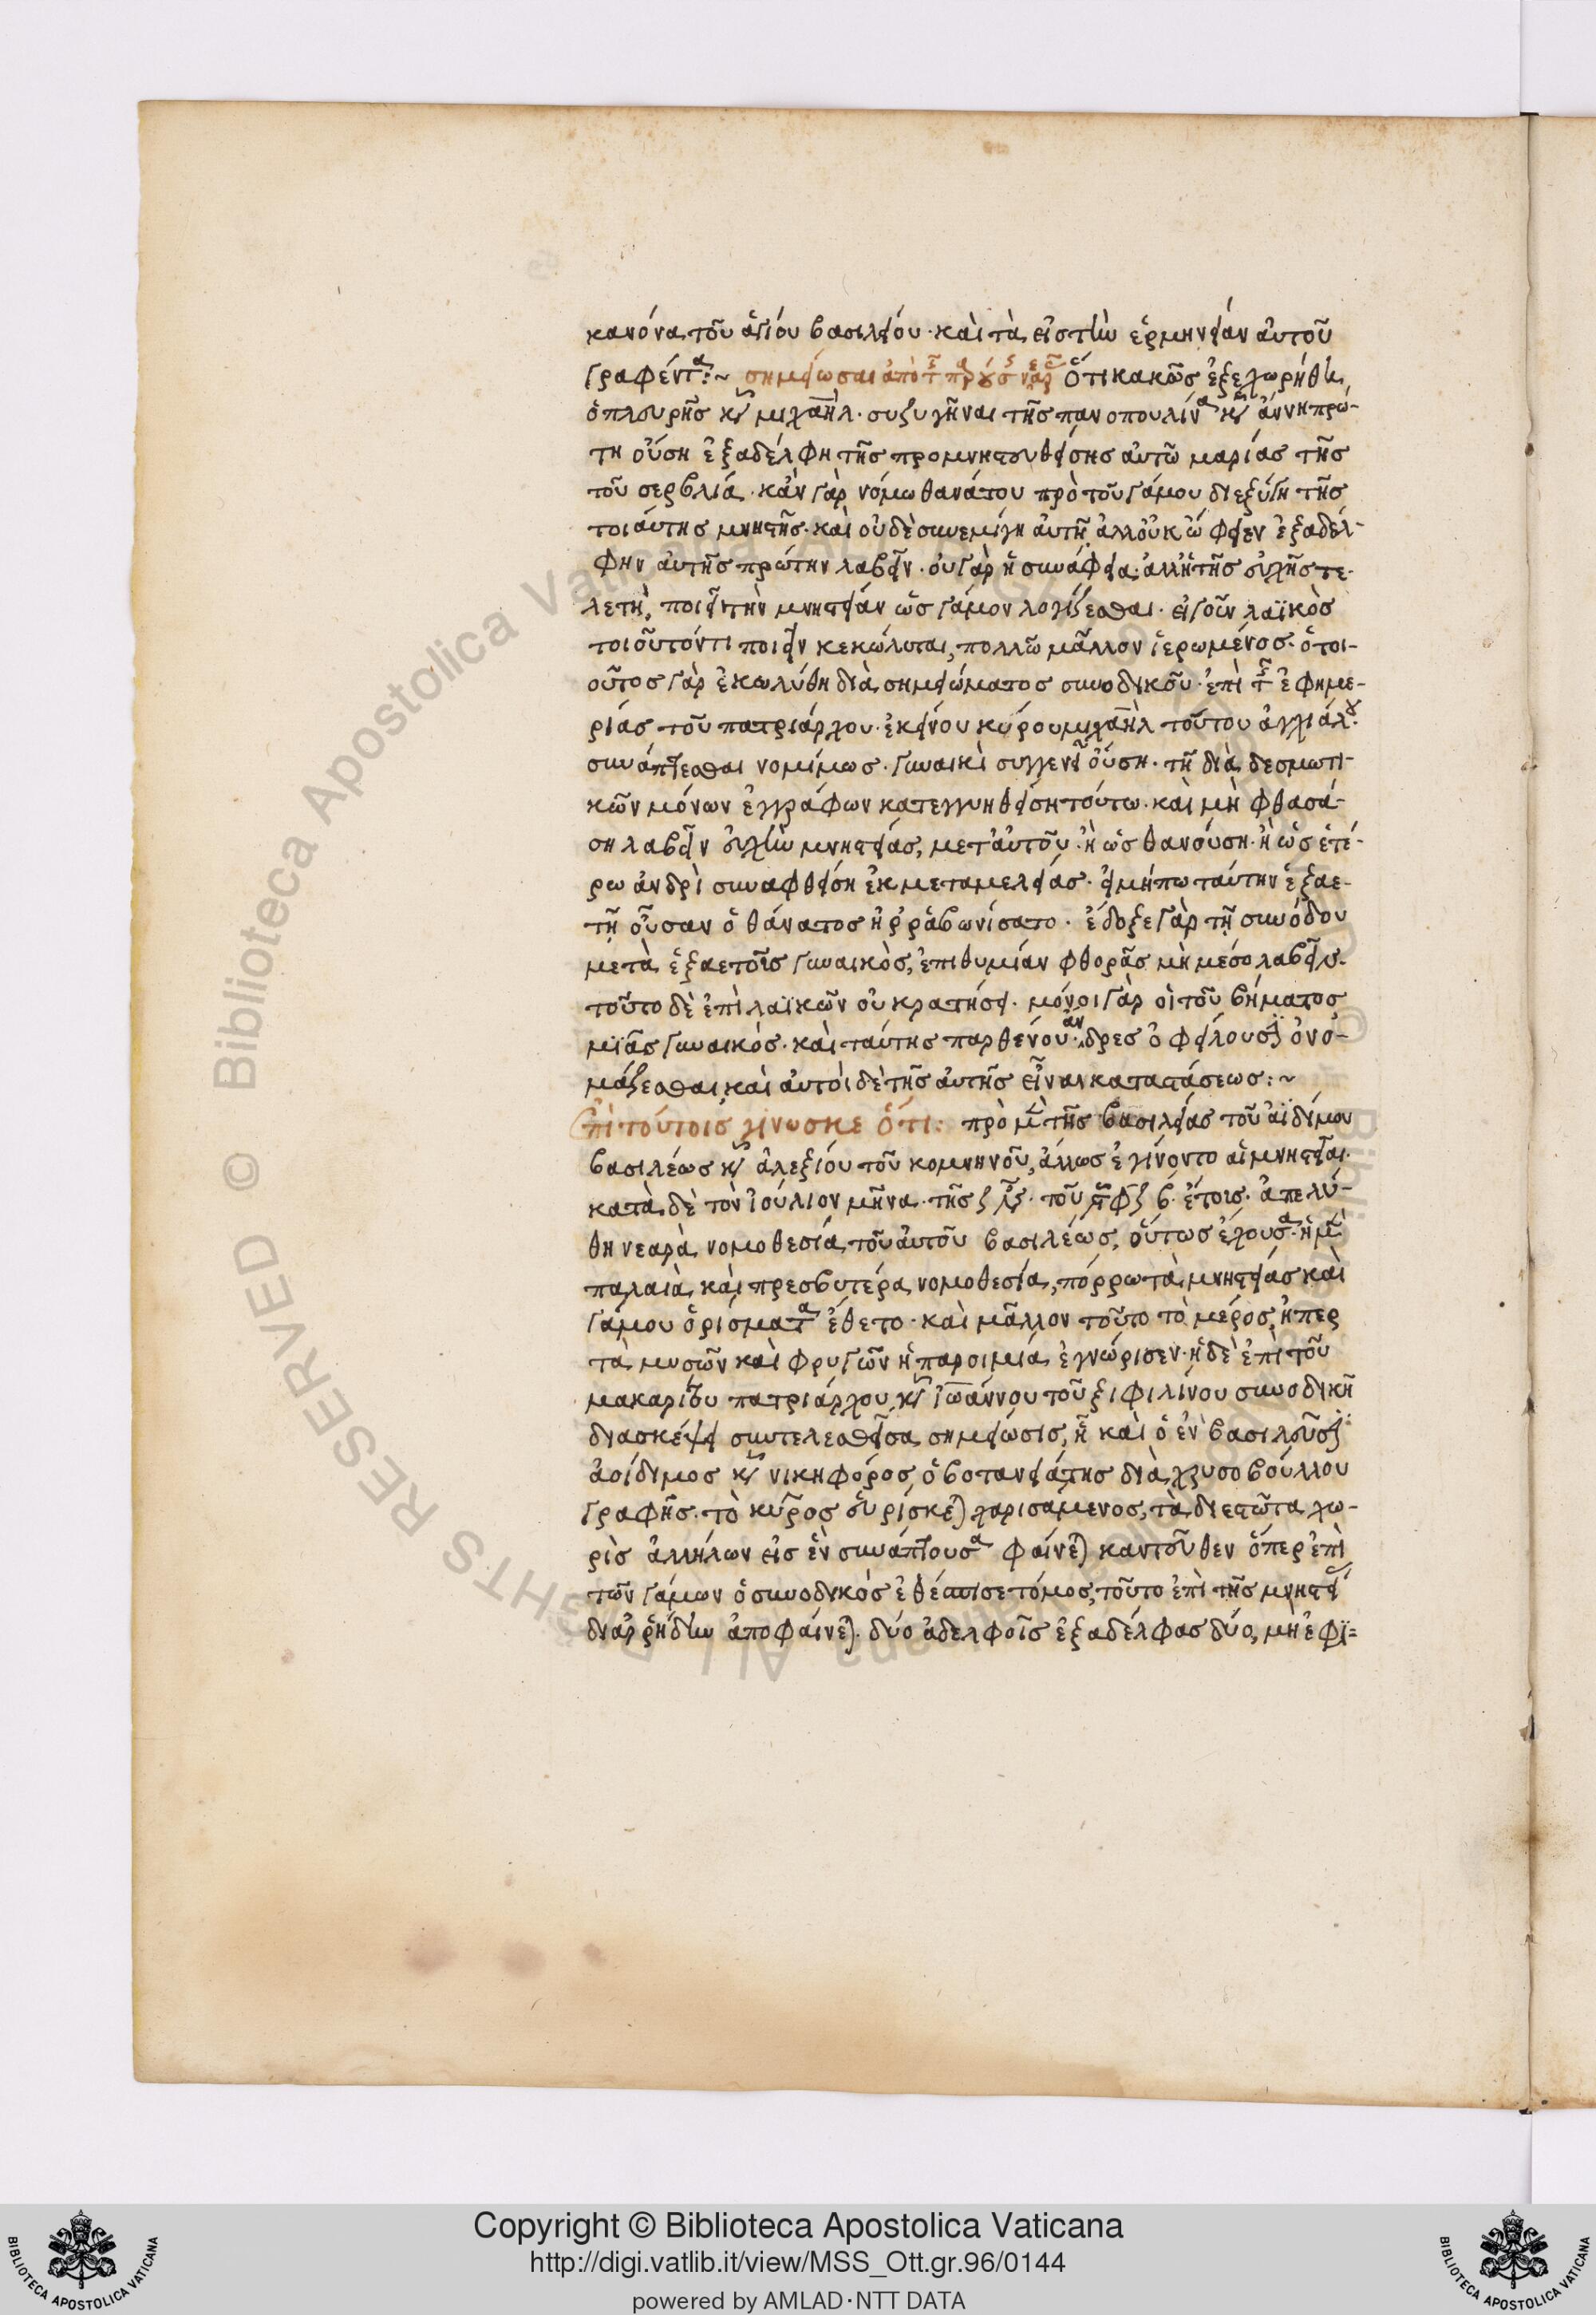 κανόνα τοῦ ἁγίου βασιλείου· καὶ τὰ εἰς τὴν ἑρμηνείαν αὐτοῦ
γραφέντα:~ σημείωσαι ἀπὸ τῆς παρούσης νεαρᾶς ὅτι κακῶς ἐξεχωρήθη
ὁ πλευρῆς κὺρ μιχαὴλ· συζυγῆναι τῆς πανοπουλίνα κυρ ἄννη πρώ-
τη οὔση ἐξαδέλφη τῆς προμνηστευθείσης αὐτῶ μαρίας τῆς
τοῦ σερβλιά· κἂν γὰρ νόμω θανάτου πρὸ τοῦ γάμου διεζύγη τῆς
τοιαύτης μνηστῆς· καὶ οὐδὲ συνεμίγη αὐτῆ ἀλλ' οὐκ ὤφειλεν ἐξαδέλ-
φην αὐτῆς πρώτην λαβεῖν· οὐ γὰρ ἡ συνάφεια· ἀλλ' ἡ τῆς εὐχῆς τε-
λετὴ, ποιεῖ τὴν μνηστείαν ὡς γάμον λογίζεσθαι· εἰ γοῦν λαϊκὸς
τοιοῦτόν τι ποιεῖν κεκώλυται, πολλῶ μᾶλλον ἱερωμένος· ὁ τοι-
οῦτος γὰρ ἐκωλύθη διὰ σημειώματος συνοδικοῦ· ἐπὶ τῆς ἐφημε-
ρίας τοῦ πατριάρχου· ἐκείνου κύρου μιχαὴλ τούτου ἀγχιάλου
συνάπτεσθαι νομίμως· γυναικὶ συγγενεῖ οὔση· τῆ διὰ δεσμωτι-
κῶν μόνων ἐγγράφων κατεγγυηθείση τούτω· καὶ μὴ φθασά-
ση λαβεῖν εὐχὴν μνηστείας, μετ' αὐτοῦ· ἢ ὡς θανούση· ἢ ὡς ἑτέ-
ρω ἀνδρὶ συναφθείση ἐκ μεταμελείας· εἰ μήπω ταύτην ἑξαε-
τῆ οὖσαν ὁ θάνατος ἠρραβωνίσατο· ἔδοξε γὰρ τῆ συνόδου
μετὰ ἑξαετοῖς γυναικὸς, ἐπιθυμίαν φθορᾶς μὴ μεσολαβεῖν·
τοῦτο δὲ ἐπὶ λαϊκῶν οὐ κρατήσει· μόνοι γὰρ οἱ τοῦ βήματος
μιᾶς γυναικός· καὶ ταύτης παρθένου· ἄνδρες ὀφείλουσιν ὀνο-
μάζεσθαι, καὶ αὐτοὶ δὲ τῆς αὐτῆς εἶναι καταστάσεως:~
Ἐπὶ τούτοις γίνωσκε ὅτι: πρὸ μὲν τῆς βασιλείας τοῦ ἀϊδίμου
βασιλέως κυρ ἀλεξίου τοῦ κομνηνοῦ, ἄλλως ἐγίνοντο αἱ μνηστεῖαι·
κατὰ δὲ τὸν ἰούλιον μῆνα· τῆς ζ ἰνδ· τοῦ ϛφϟβ ἔτοις· ἀπελύ-
θη νεαρὰ νομοθεσία τοῦ αὐτοῦ βασιλέως, οὕτως ἔχουσα· ἡ μὲν
παλαιὰ καὶ πρεσβυτέρα νομοθεσία, πόρρω τὰ μνηστείας καὶ
γάμου ὁρίσματα ἔθετο· καὶ μᾶλλον τοῦτο τὸ μέρος, ἤπερ
τὰ μυσῶν καὶ φρυγῶν ἡ παροιμία ἐγνώρισεν· ἡ δὲ ἐπὶ τοῦ
μακαρίτου πατριάρχου κυρ ἰωάννου τοῦ ξιφιλίνου συνοδικῆ
διασκέψει συντελεσθεῖσα σημείωσις, ἧ καὶ ὁ ἐν βασιλεῦσιν
ἀοίδιμος κυρ νικηφόρος, ὁ βοτανειάτης διὰ χρυσοβούλλου
γραφῆς· τὸ κῦρος εὑρίσκεται χαρισάμενος, τὰ διεστῶτα χω-
ρὶς ἀλλήλων εἰς ἓν συνάπτουσα φαίνεται καντοῦθεν ὅπερ ἐπὶ
τῶν γάμων ὁ συνοδικὸς ἐθέσπισε τόμος, τοῦτο ἐπὶ τῆς μνηστεί
διαρρήδην ἀποφαίνεται· δύο ἀδελφοῖς ἐξαδέλφας δύο, μὴ ἐφι=
Copyright © Biblioteca Apostolica Vaticana
http://digi.vatlib.it/view/MSS_Ott.gr.96/0144
powered by AMLAD·NTT DATA
BIBLIOTECA APOSTOLICA VATICANA
BIBLIOTECA APOSTOLICA VATICANA
© Biblioteca Apostolica Vaticana ALL RIGHTS RESERVED